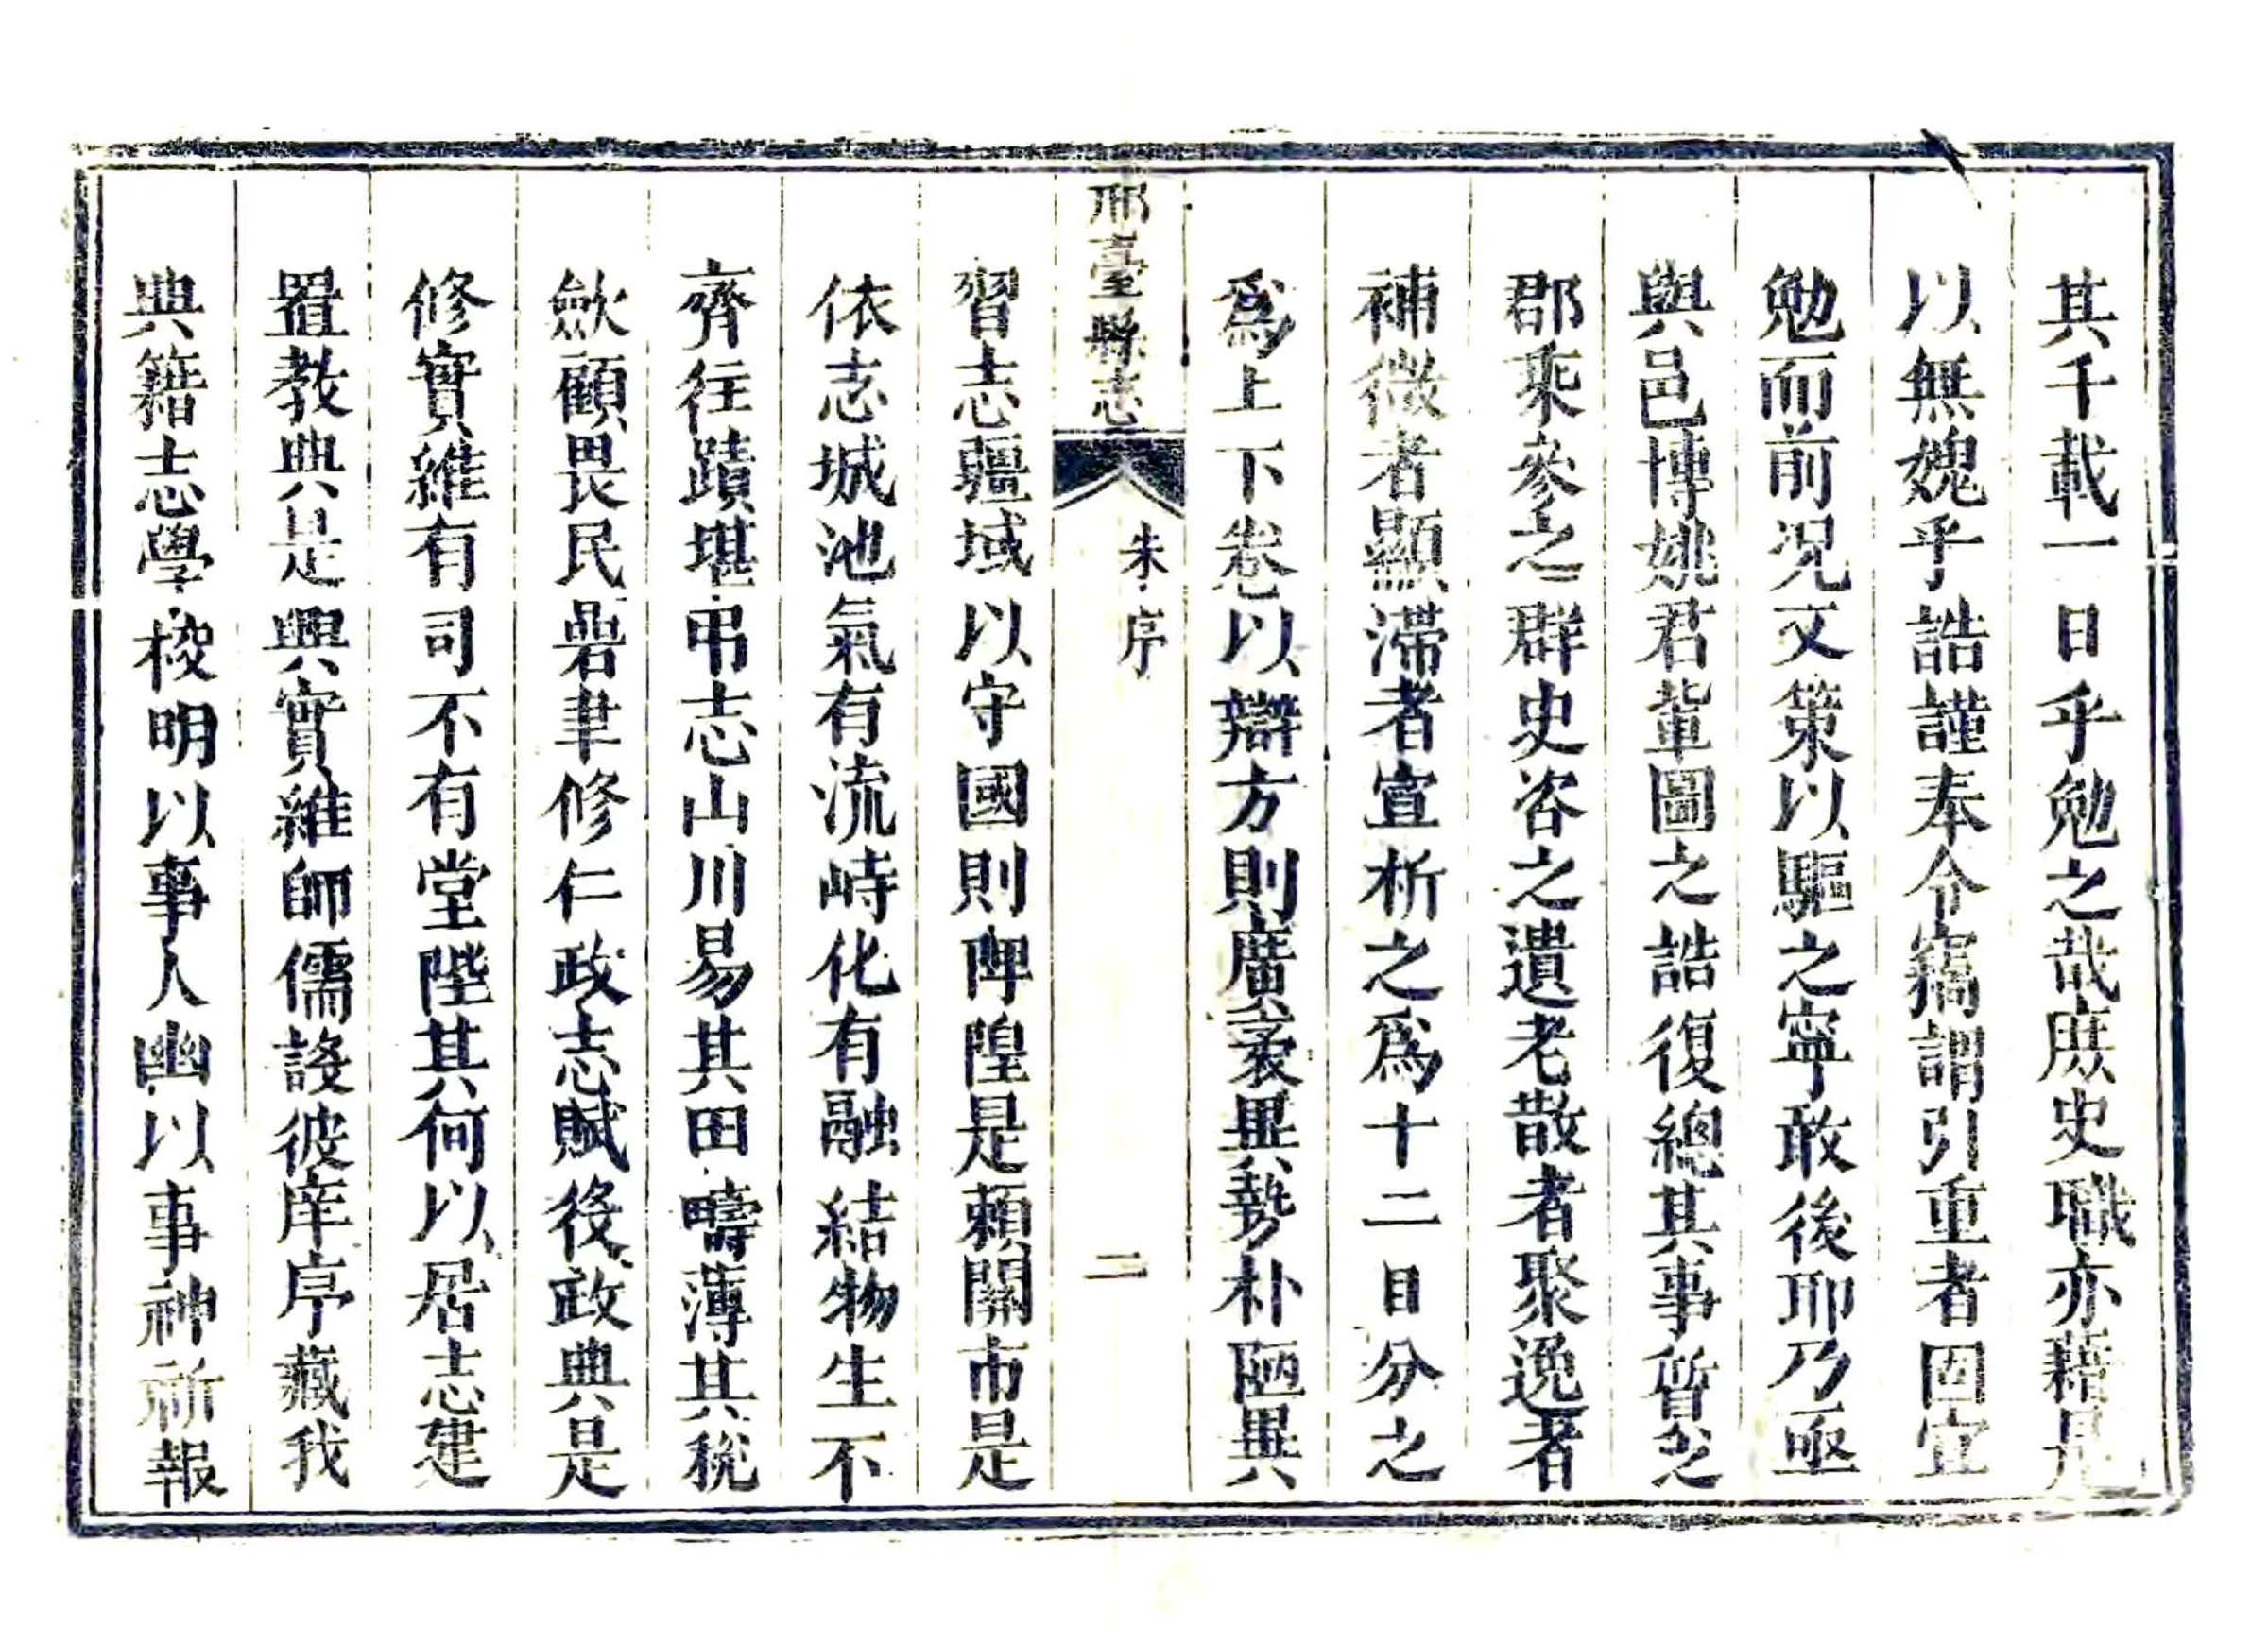 其千載一日乎勉之哉庶史職亦藉是
以無媿乎誥謹奉令竊謂引重者固宜
勉而前况文策以驅之寧敢後耶乃亟
與邑博姚君輩圖之誥復總其事質之
郡乘參之群史咨之遺老散者聚逸者
補微者顯滯者宣析之爲十二目分之
爲上下卷以辯方則廣袤異勢朴陋異
邢臺縣志
朱序
二
習志疆域以守國則陴隍是賴關市是
依志城池氣有流峙化有融結物生不
齊往蹟堪弔志山川易其田疇薄其稅
歛顧畏民碞聿修仁政志賦役政典是
修實維有司不有堂陛其何以居志建
置教典是興實維師儒設彼庠序藏我
典籍志學校明以事人幽以事神祈報